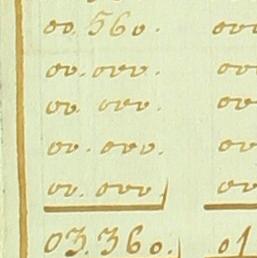 00.560. 000
00.000. 000
00 000. 000
00.000. 000
00.000. 000
03.360. 01